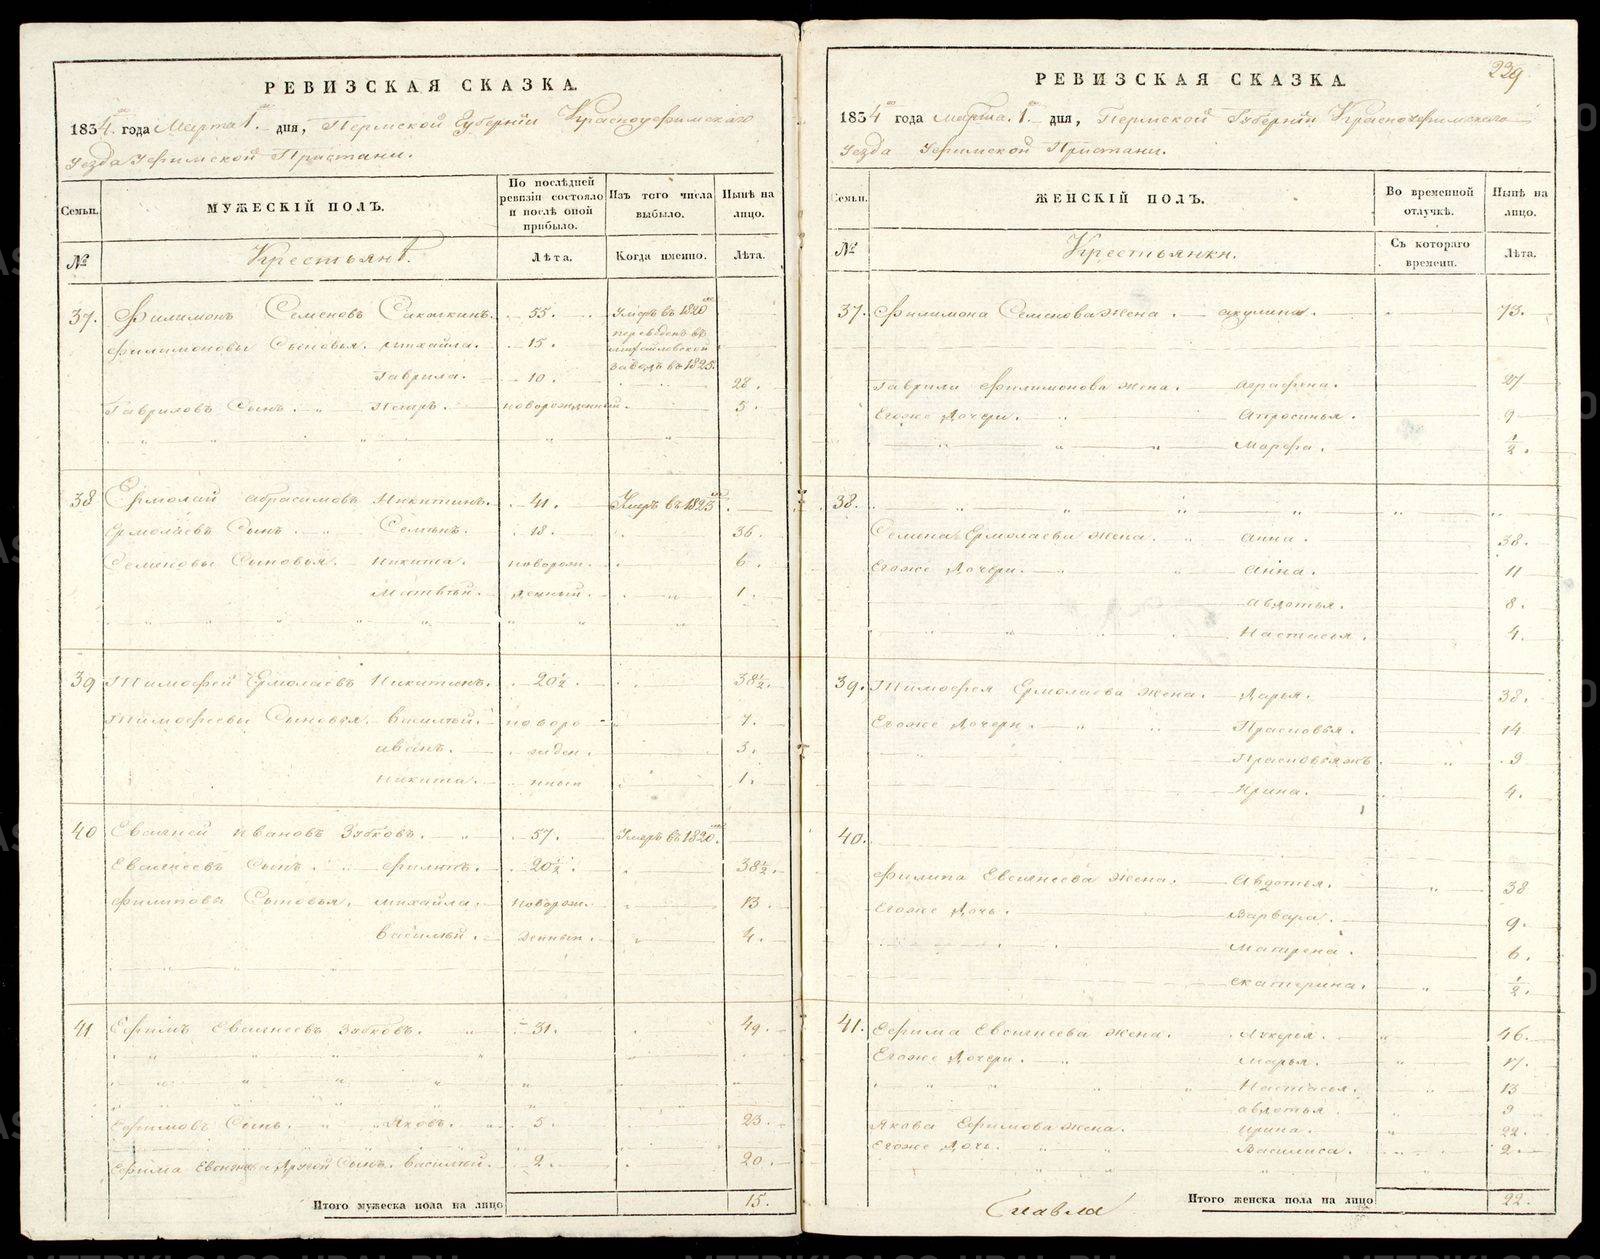 РЕВИЗСКАЯ СКАЗКА.
1834.го года Марта 1. дня, Пермской Губернiи Красноуфимскаго
Уезда Уфимской Пристани.
Семьи.
МУЖЕСКIЙ ПОЛЪ.
По послѣдней ревизiи состояло и послѣ оной прибыло.
Изъ того числа выбыло.
Нынѣ на лицо.
№
Крестьянѣ.
Лѣта.
Когда именно.
Лѣта.
37. Филимонъ Семеновъ 55. Умеръ въ 1820
Филимоновы Сыновья. Михайла. 15. переведенъ въ
Михайловской
заводъ въ 1825.
Гаврила. 10. 28.
Гавриловъ Сынъ. Петръ. новорожденный. 5.
38 Ермолай Абрасимовъ Никитинъ. 41. Умеръ въ 1825
Ермолаевъ Сынъ. Семенъ. 18. 36.
Семеновы Сыновья. Никита. новорож. 6.
Матвѣй. денный. 1.
39 Тимофей Ермолаевъ Никитинъ. 20½. 38½.
Тимофеевы Сыновья. Василѣй. новоро 7.
Иванъ. жден. 3.
Никита. нныя 1.
40 Евсигней Ивановъ Зубковъ. 57. Умеръ въ 1820.
Евсигнеевъ Сынъ. Филипъ. 20½. 38½.
Филипова Сыновья. Михайла. новорож. 13.
Василѣй. денныи. 4.
41 Ефимъ Евсигнеевъ Зубковъ. 31. 49.
Ефимовъ Сынъ. Яковъ. 5. 23.
Ефима Евсигнеева Другой Сынъ. Василѣй. 2. 20.
Итого мужеска пола на лицо 15.
239
РЕВИЗСКАЯ СКАЗКА.
1834го года Марта. 1. дня, Пермской Губернiи Красноуфимскаго
Уезда Уфимской Пристани.
Семьи.
ЖЕНСКIЙ ПОЛЪ.
Во временной отлучкѣ.
Нынѣ на лицо.
№
Крестьянки.
Съ котораго времени.
Лѣта.
37. Филимона Семенова жена. Акулина. 73.
Гаврили Филимонова жена. Аграфена. 27
Егоже Дочери. Апросинья. 9
Марфа. ½.
38.
Семена Ермолаева жена. Анна. 38.
Егоже Дочери. Анна. 11
Авдотья. 8.
Настасья. 4.
39. Тимофея Ермолаева жена. Дарья. 38.
Егоже Дочери. Прасковья. 14
Прасковьяжъ 9
Ирина. 4.
40.
Филипа Евсигнеева жена. Авдотья. 38
Егоже Дочь. Варвара. 9.
Матрена. 6.
Екатерина. ½.
41. Ефима Евсигнеева жена. Лукерья. 46.
Егоже Дочери. Марья. 17.
Настасья. 13
Авдотья 9
Якова Ефимова жена. Ирина. 22.
Егоже Дочь. Василиса. 2.
Итого женска пола на лицо 22.